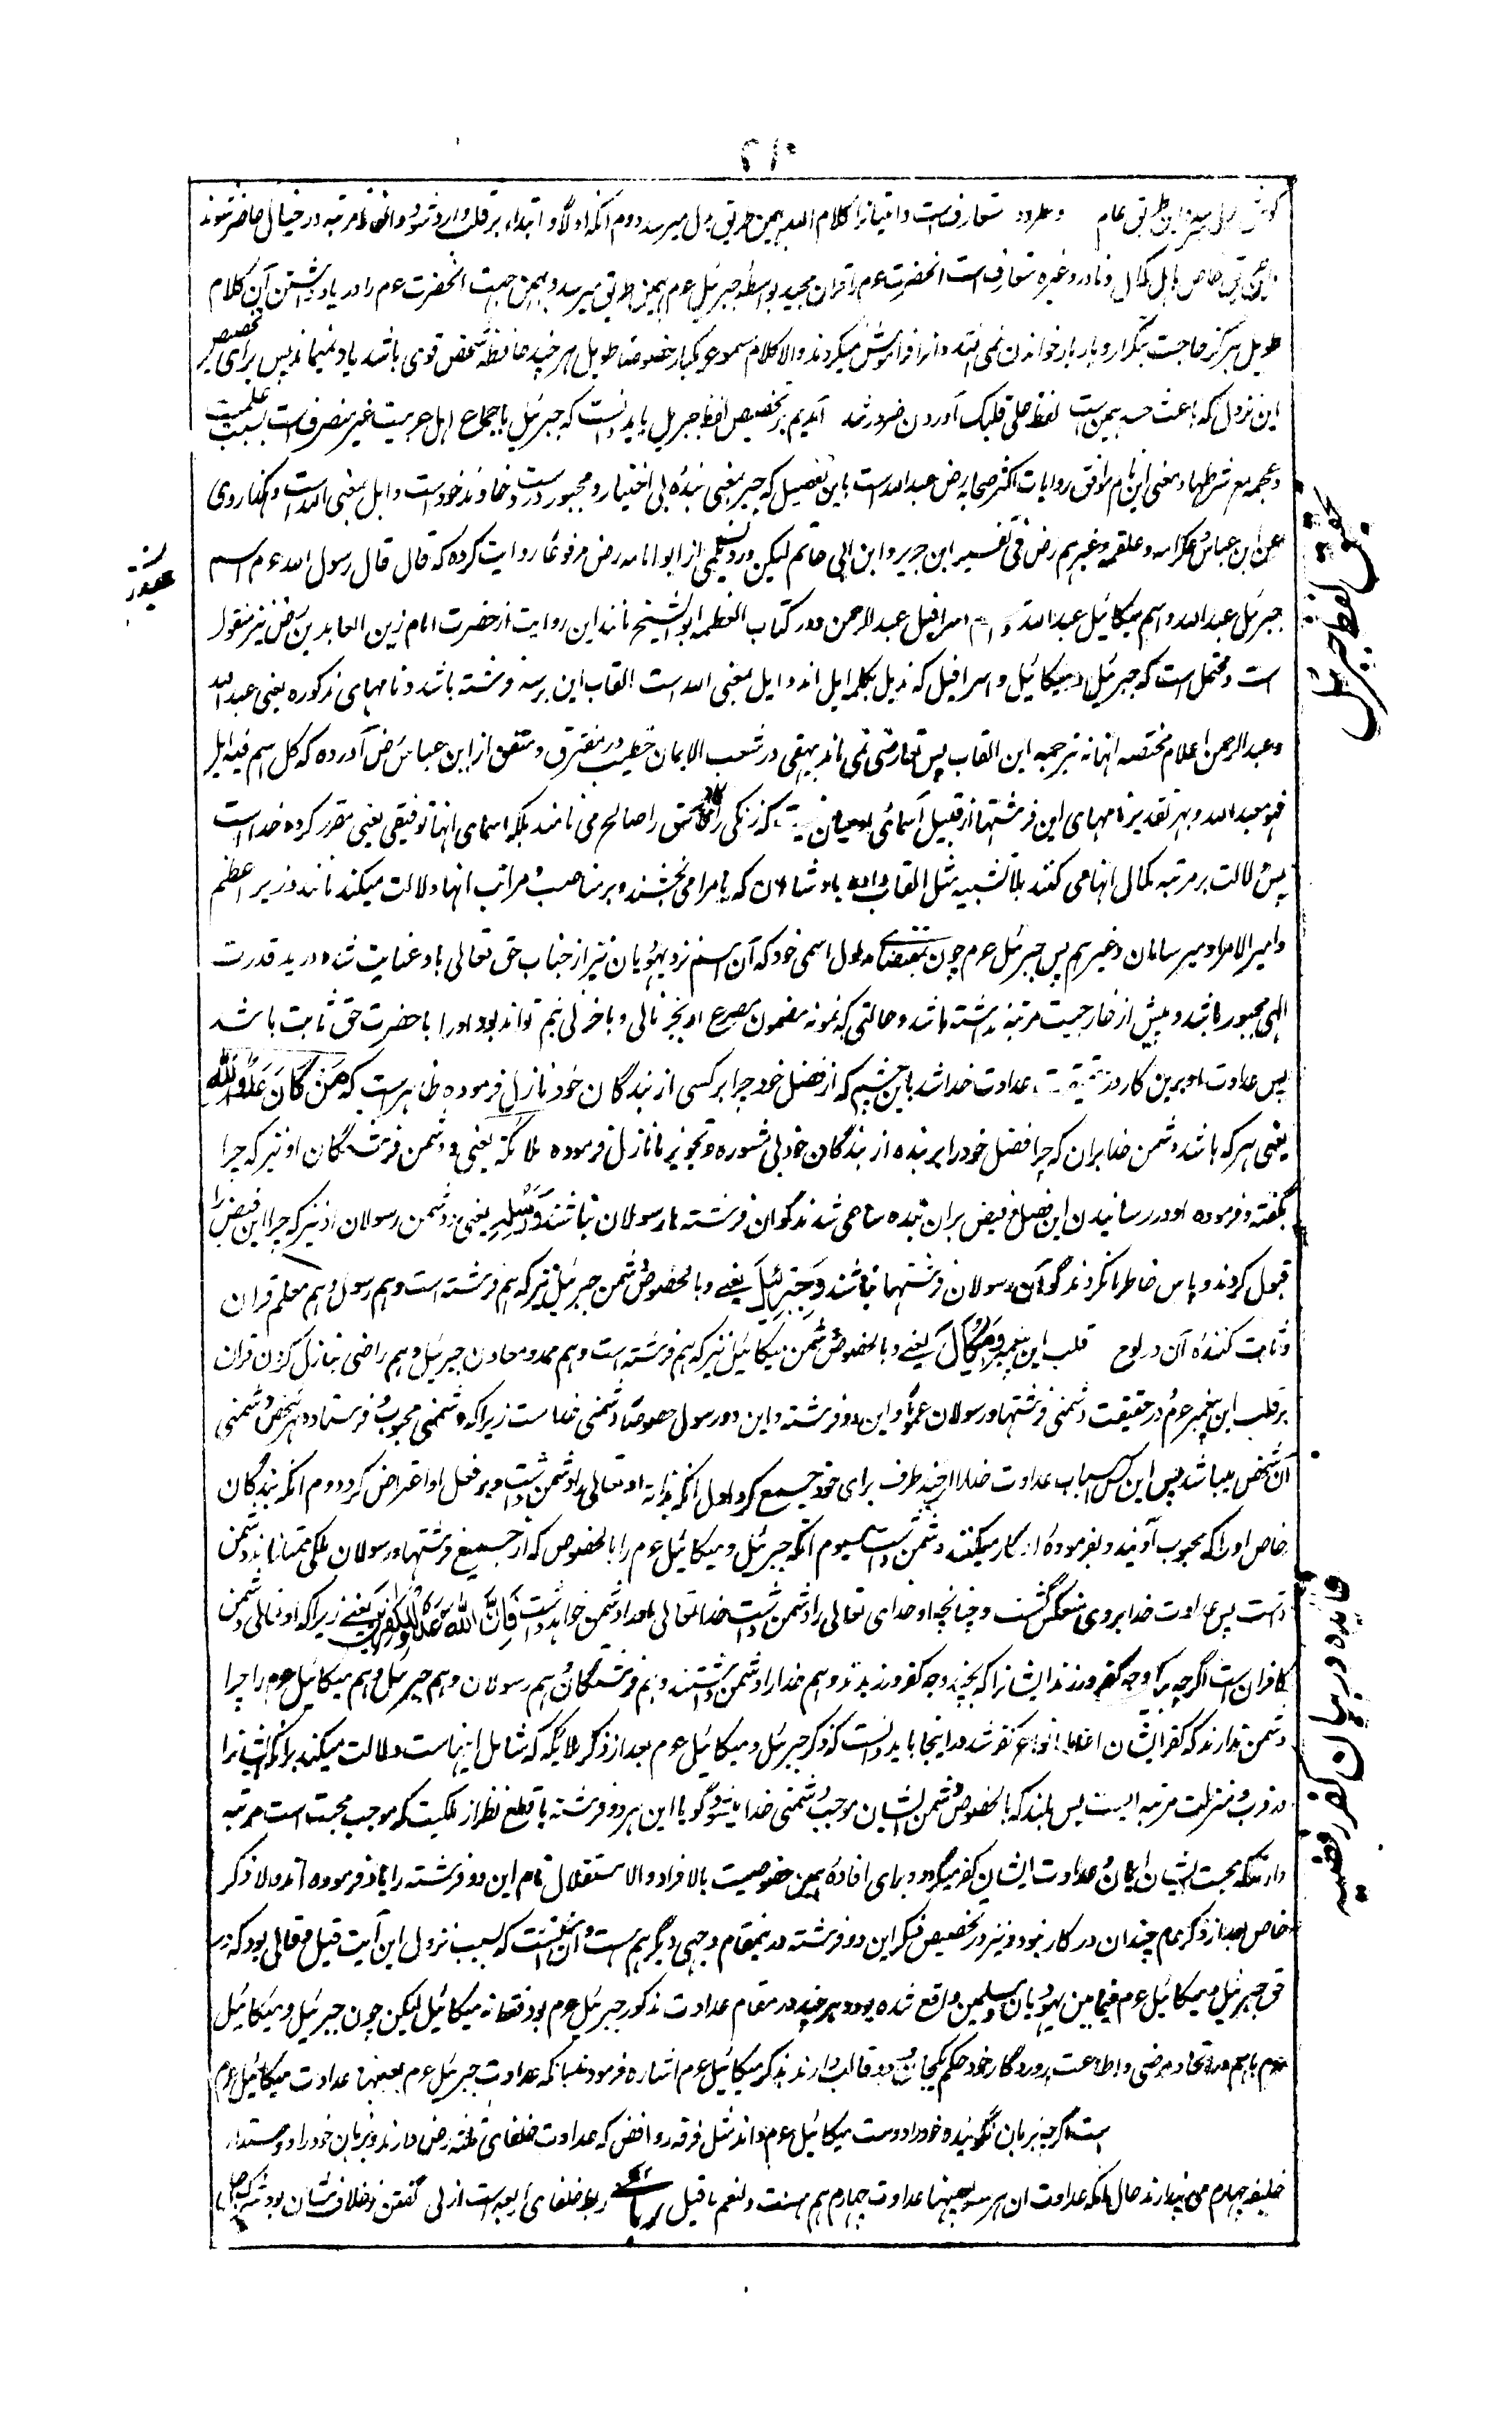 ۲۱۰
گوش بدل میرسد و این طریق عام و مطرد و متعارف است و امتیاز را کلام الله بهمین طریق بدل میرسد دوم آنکه اولاً و ابتداء بر قلب وارد شود و الفاظ مرتبه در خیال حاضر شوند
و این طریق خاص باهل کمال و نادر و غیره متعارف است آنحضرت عم را قران مجید بواسطه جبرئیل عم بهمین طریق میرسد و بهمین جهت آنحضرت عم را در یاد داشتن آن کلام
طویل هرگز حاجت بتکرار و بار بار خواندن نمی افتد و آنرا فراموش نمیکردند والا کلام مسموع یکبار خصوصا طویل هر چند حافظه شخص قوی باشد یاد نمیماند پس برای تخصیص
این نزول که باعث حسد همین است لفظ علی قلبک آوردن ضرور شد آمدیم بر تخصیص لفظ جبریل باید دانست که جبرئیل باجماع اهل عربیت غیر منصرف است بسبب علمیت
و عجمه مع شرطها و معنی این نام موافق روایات اکثر صحابه رض عبدالله است باین تفصیل که جبر بمعنی بنده بی اختیار و مجبور در دست خاوند خود است و ایل بمعنی الله است و هکذا روی
عن ابن عباس و عکرمه و علقمه و غیرهم رض فی تفسیر ابن جریر و ابن ابی حاتم لیکن ویلمی از ابو امامه رض مرفوعا روایت کرده که قال قال رسول الله عم اسم
جبرئیل عبدالله و اسم میکائیل عبدالله و اسم اسرافیل عبدالرحمن و در کتاب العظمه ابو الشیخ مانند این روایت از حضرت امام زین العابدین رض نیز منقول
است و محتمل است که جبرئیل و میکائیل و اسرافیل که مذیل بکلمه ایل اند و ایل بمعنی الله است القاب این هر سه فرشته باشد و نامهای مذکوره یعنی عبدالله
و عبدالرحمن اعلام مختصه آنها نه ترجمه این القاب پس تعارضی نمی ماند بیهقی در شعب الایمان و خطیب در متفق و مفترق از ابن عباس رض آورده که کل اسم فیه ایل
فهو معبد الله و بهر تقدیر نامهای این فرشتها از قبیل اسمای آدمیان نیست که زنگی را کافور و فاسق را صالح می نامند بلکه اسمای آنها توقیفی یعنی مقرر کرده خدا است
پس دلالت بر مرتبه کمال آنها می کنند بلا تشبیه مثل القاب داده بادشاهان که بامرا می بخشند و بر مناصب و مراتب آنها دلالت میکند مانند وزیر اعظم
و امیر الامرا و میر سامان و غیرهم پس جبرئیل عم چون بمقتضای مدلول اسمی خود که آن اسم نزد یهودیان نیز از جناب حق تعالی باو عنایت شده در ید قدرت
الهی مجبور باشد و بیش از خارجیت مرتبه نداشته باشد و حالتی که نمونه مضمون مصرع او بجز نائی و ما جز نی نیم تواند بود او را با حضرت حق ثابت باشد
پس عداوت او برین کار در حقیقت عداوت خدا شد باین حیثیت که از فضل خود چرا بر کسی از بندگان خود نازل فرموده ظاهر است که مَنْ کَانَ عَدُوًّا لِلّٰهِ
یعنی هر که باشد دشمن خدا بران که چرا فضل خود را بر بنده از بندگان خود بی مشوره و تجویز ما نازل فرموده ملائکته یعنی و دشمن فرشتگان او نیز که چرا
بگفته و فرموده او در رسانیدن این فضل و فیض بران بنده ساعی شدند گو آن فرشته ها رسولان نباشند وَرُسُلِهِ یعنی و دشمن رسولان او نیز که چرا این فیض را
قبول کردند و پاس خاطر ما نکردند گو آن رسولان فرشتها نباشند وَجِبْرِيلَ یعنی و بالخصوص دشمن جبرئیل نیز که هم فرشته است و هم رسول و هم معلم قران
و ثابت کننده آن در لوح قلب این پیغمبر وَمِيكَالَ یعنی و بالخصوص دشمن میکائیل نیز که هم فرشته است و هم ممد و معاون جبرئیل و هم راضی بنازل کردن قران
بر قلب این پیغمبر عم در حقیقت دشمنی فرشتها و رسولان عموماً و این دو فرشته و این دو رسول خصوصاً دشمنی خدا است زیرا که دشمنی محبوب و فرستاده هر شخص دشمنی
آن شخص میباشد پس این کس اسباب عداوت خدا را از چند طرف برای خود جمع کرد اول آنکه بذات او تعالی دشمن داشت و بر فعل او اعتراض کرد دوم آنکه بندگان
خاص او را که محبوب آویند و بفرموده او کار میکنند دشمن داشت سیوم آنکه جبرئیل و میکائیل عم را بالخصوص که از جمیع فرشتها و رسولان ملکی ممتاز اند دشمن
داشت پس عداوت خدا بروی منعکس گشت و چنانچه او خدای تعالی را دشمن داشت خدا تعالی هم او را دشمن خواهد داشت فَإِنَّ اللهَ عَدُوٌّ لِّلْكَافِرِينَ یعنی زیرا که او تعالی دشمن
کافران است اگر چه یک وجه کفر ورزند ایشانرا که بچند وجه کفر ورزیدند و هم خدا را دشمن داشتند و هم فرشتگان و هم رسولان و هم جبرئیل و هم میکائیل عم را چرا
دشمن ندارند که کفر ایشان اغلظ انواع کفر شد و اینجا باید دانست که ذکر جبرئیل و میکائیل عم بعد از ذکر ملائکه که شامل اینهاست دلالت میکند بر آنکه ایشانرا
در قرب و منزلت مرتبه ایست بس بلند که بالخصوص دشمنی ایشان موجب دشمنی خدا میشود و گویا این هر دو فرشته با قطع نظر از ملکیت که موجب محبت است مرتبه
دارند که محبت ایشان ایمان و عداوت ایشان کفر میگردد و برای افاده همین خصوصیت بالافراد والاستقلال نام این دو فرشته را یاد فرموده اند والا ذکر
خاص بعد از ذکر عام چندان در کار نبود و نیز در تخصیص ذکر این دو فرشته درینمقام وجهی دیگر هم هست و آن اینست که سبب نزول این آیت قیل و قالی بود که در
حق جبرئیل و میکائیل عم فیما بین یهودیان و مسلمین واقع شده بود و هر چند در مقام عداوت مذکور جبرئیل عم بود فقط نه میکائیل لیکن چون جبرئیل و میکائیل
عم باهم در اتحاد مرضی و اطاعت پروردگار خود حکم یکجان و دو قالب دارند بذکر میکائیل عم اشاره فرمودند بآنکه عداوت جبرئیل عم بعینها عداوت میکائیل عم
است اگر چه بزبان گویند و خود را دوست میکائیل عم دانند مثل فرقه روافض که عداوت خلفای ثلثه رض دارند و بزبان خود را دوستدار
خلیفه چهارم می پندارند حال آنکه عداوت آن هر سه بعینها عداوت چهارم هم هست ولنعم ما قیل رباعی ربط خلفای اربعه است ازلی گفتن و خلاف شان بود
تحقیق لفظ جبرئیل
فایده در بیان کفر رفضیه